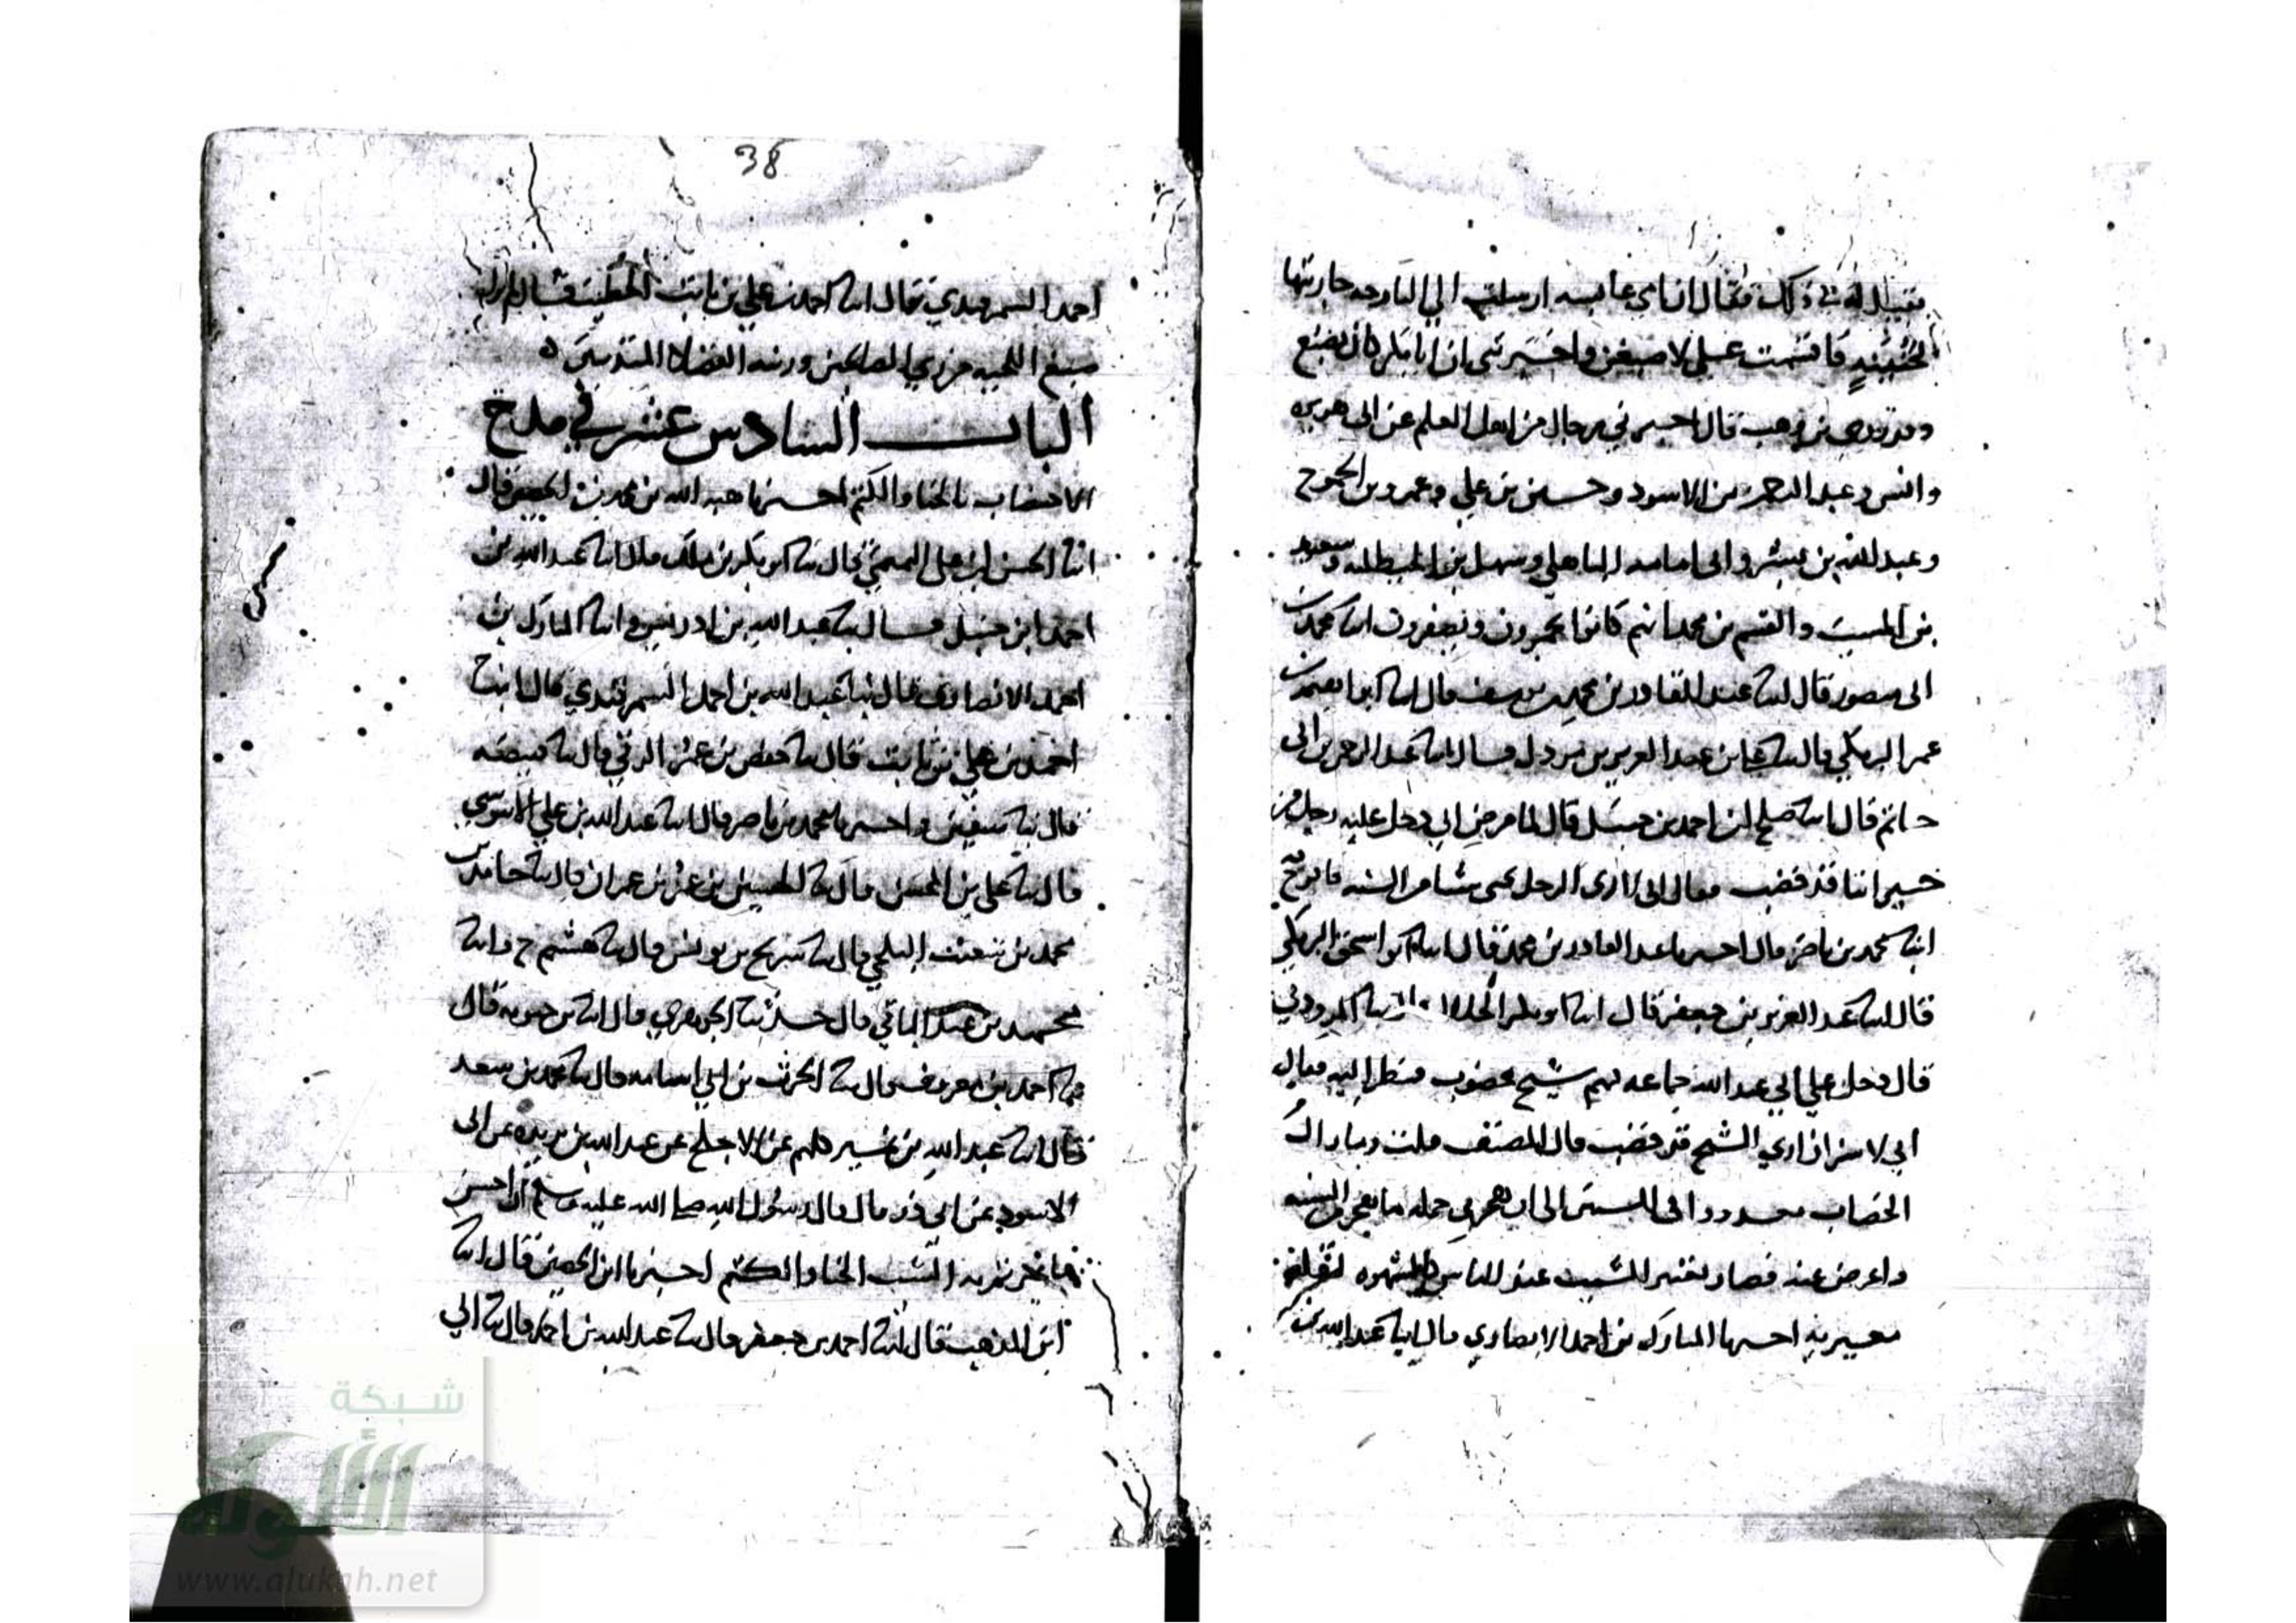 فقيل له في ذلك فقال ان امي عايشه ارسلت الي البارحه جاريتها
نخيله فاقسمت علي لاصبغن واخبرتني ان ابا بكر كان يصبغ
وهب قال اخبرني رجال من اهل العلم عن ابي هريره
وانس وعبد الرحمن بن الاسود وحسين بن علي وعمرو بن الجموح
وعبد الله بن بشر وابي امامه الباهلي وسهل بن الحنظليه وسعيد
بن المسيب والقسم بن محمد انهم كانوا يحمرون ويصفرون انبا محمد بن
ابي منصور قال انبا عبد القادر بن محمد بن يوسف قال انبا ابو اسحق
عمر البرمكي قال انبا علي بن عبد العزيز بن مردك قال انبا عبد الرحمن بن ابي
حاتم قال انبا صلح ابن احمد بن حنبل قال لما مرض ابي دخل عليه رجل من
جيراننا قد خضب فقال ابي اني لارى الرجل يحيى شيا من السنه فافرح به
انبا محمد بن ناصر قال اخبرنا عبد القادر بن محمد قال انبا ابو اسحق البرمكي
قال انبا عبد العزيز بن جعفر قال انبا ابو بكر الخلال انبا المروذي
قال دخل علي ابي عبد الله جماعه فيهم شيخ مخضوب فنظر اليه فقال
اني لاسر ان اري الشيخ قد خضب قال المصنف قلت وما زال
الخضاب الى ان هجر في جمله ما هجر من السنه
واعرض عنه فصار تغيير الشيب عند الناس كالشهره لقله
مغيريه اخبرنا المبارك بن احمد الانصاري قال انبا عبد الله بن
38
احمد السمرقندي قال انبا احمد بن علي بن ثابت الخطيب قال لم يزل
صبغ اللحيه من زي الصالحين وزينه الفضلا المتدينين
الباب السادس عشر في مدح
الاختضاب بالحنا والكتم اخبرنا هبه الله بن محمد بن الحصين قال
انبا الحسن ابن علي التميمي قال انبا ابو بكر بن ملك قال انبا عبد الله بن
احمد ابن حنبل قال انبا عبد الله بن ادريس وانبا المبارك بن
احمد الانصاري قال انبا عبد الله بن احمد السمرقندي قال انبا
احمد بن علي بن ثابت قال انبا حفص بن عمر الرقي قال انبا قبيصه
قال انبا سفين واخبرنا محمد بن ناصر قال انبا عبد الله بن علي الابنوسي
قال انبا علي بن المحسن قال انبا الحسين بن عمر بن عمران قال انبا حامد بن
محمد بن شعيب البلخي قال انبا سريج بن يونس قال انبا هشيم ح وانبا
محمد بن عبد الباقي قال حدثنا الجوهري قال انبا بن حيويه قال
انبا احمد بن معروف قال انبا الحرث بن ابي اسامه قال انبا محمد بن سعد
قال انبا عبد الله بن نمير كلهم عن الاجلح عن عبد الله بن بريده عن ابي
الاسود عن ابي ذر قال قال رسول الله صلى الله عليه وسلم ان احسن
ما غيرتم به الشيب الحنا والكتم اخبرنا ابن الحصين قال انبا
ابن المذهب قال انبا احمد بن جعفر قال انبا عبد الله بن احمد قال انبا ابي
شبكة
الألوكة
www.alukah.net